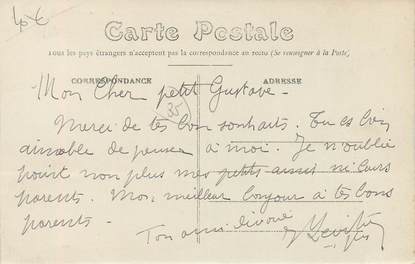 40€
Carte Postale
Tous les pays étrangers n'acceptent pas la correspondance au recto (Se renseigner à la Poste)
CORRESPONDANCE ADRESSE
Mon Cher petit Gustave -
35
Merci de tes bons souhaits. Tu es bien
aimable de penser à moi. Je n'oublie
point non plus mes petits amis ni leurs
parents. Mon meilleur bonjour à tes bons
parents.
Ton ami dévoué